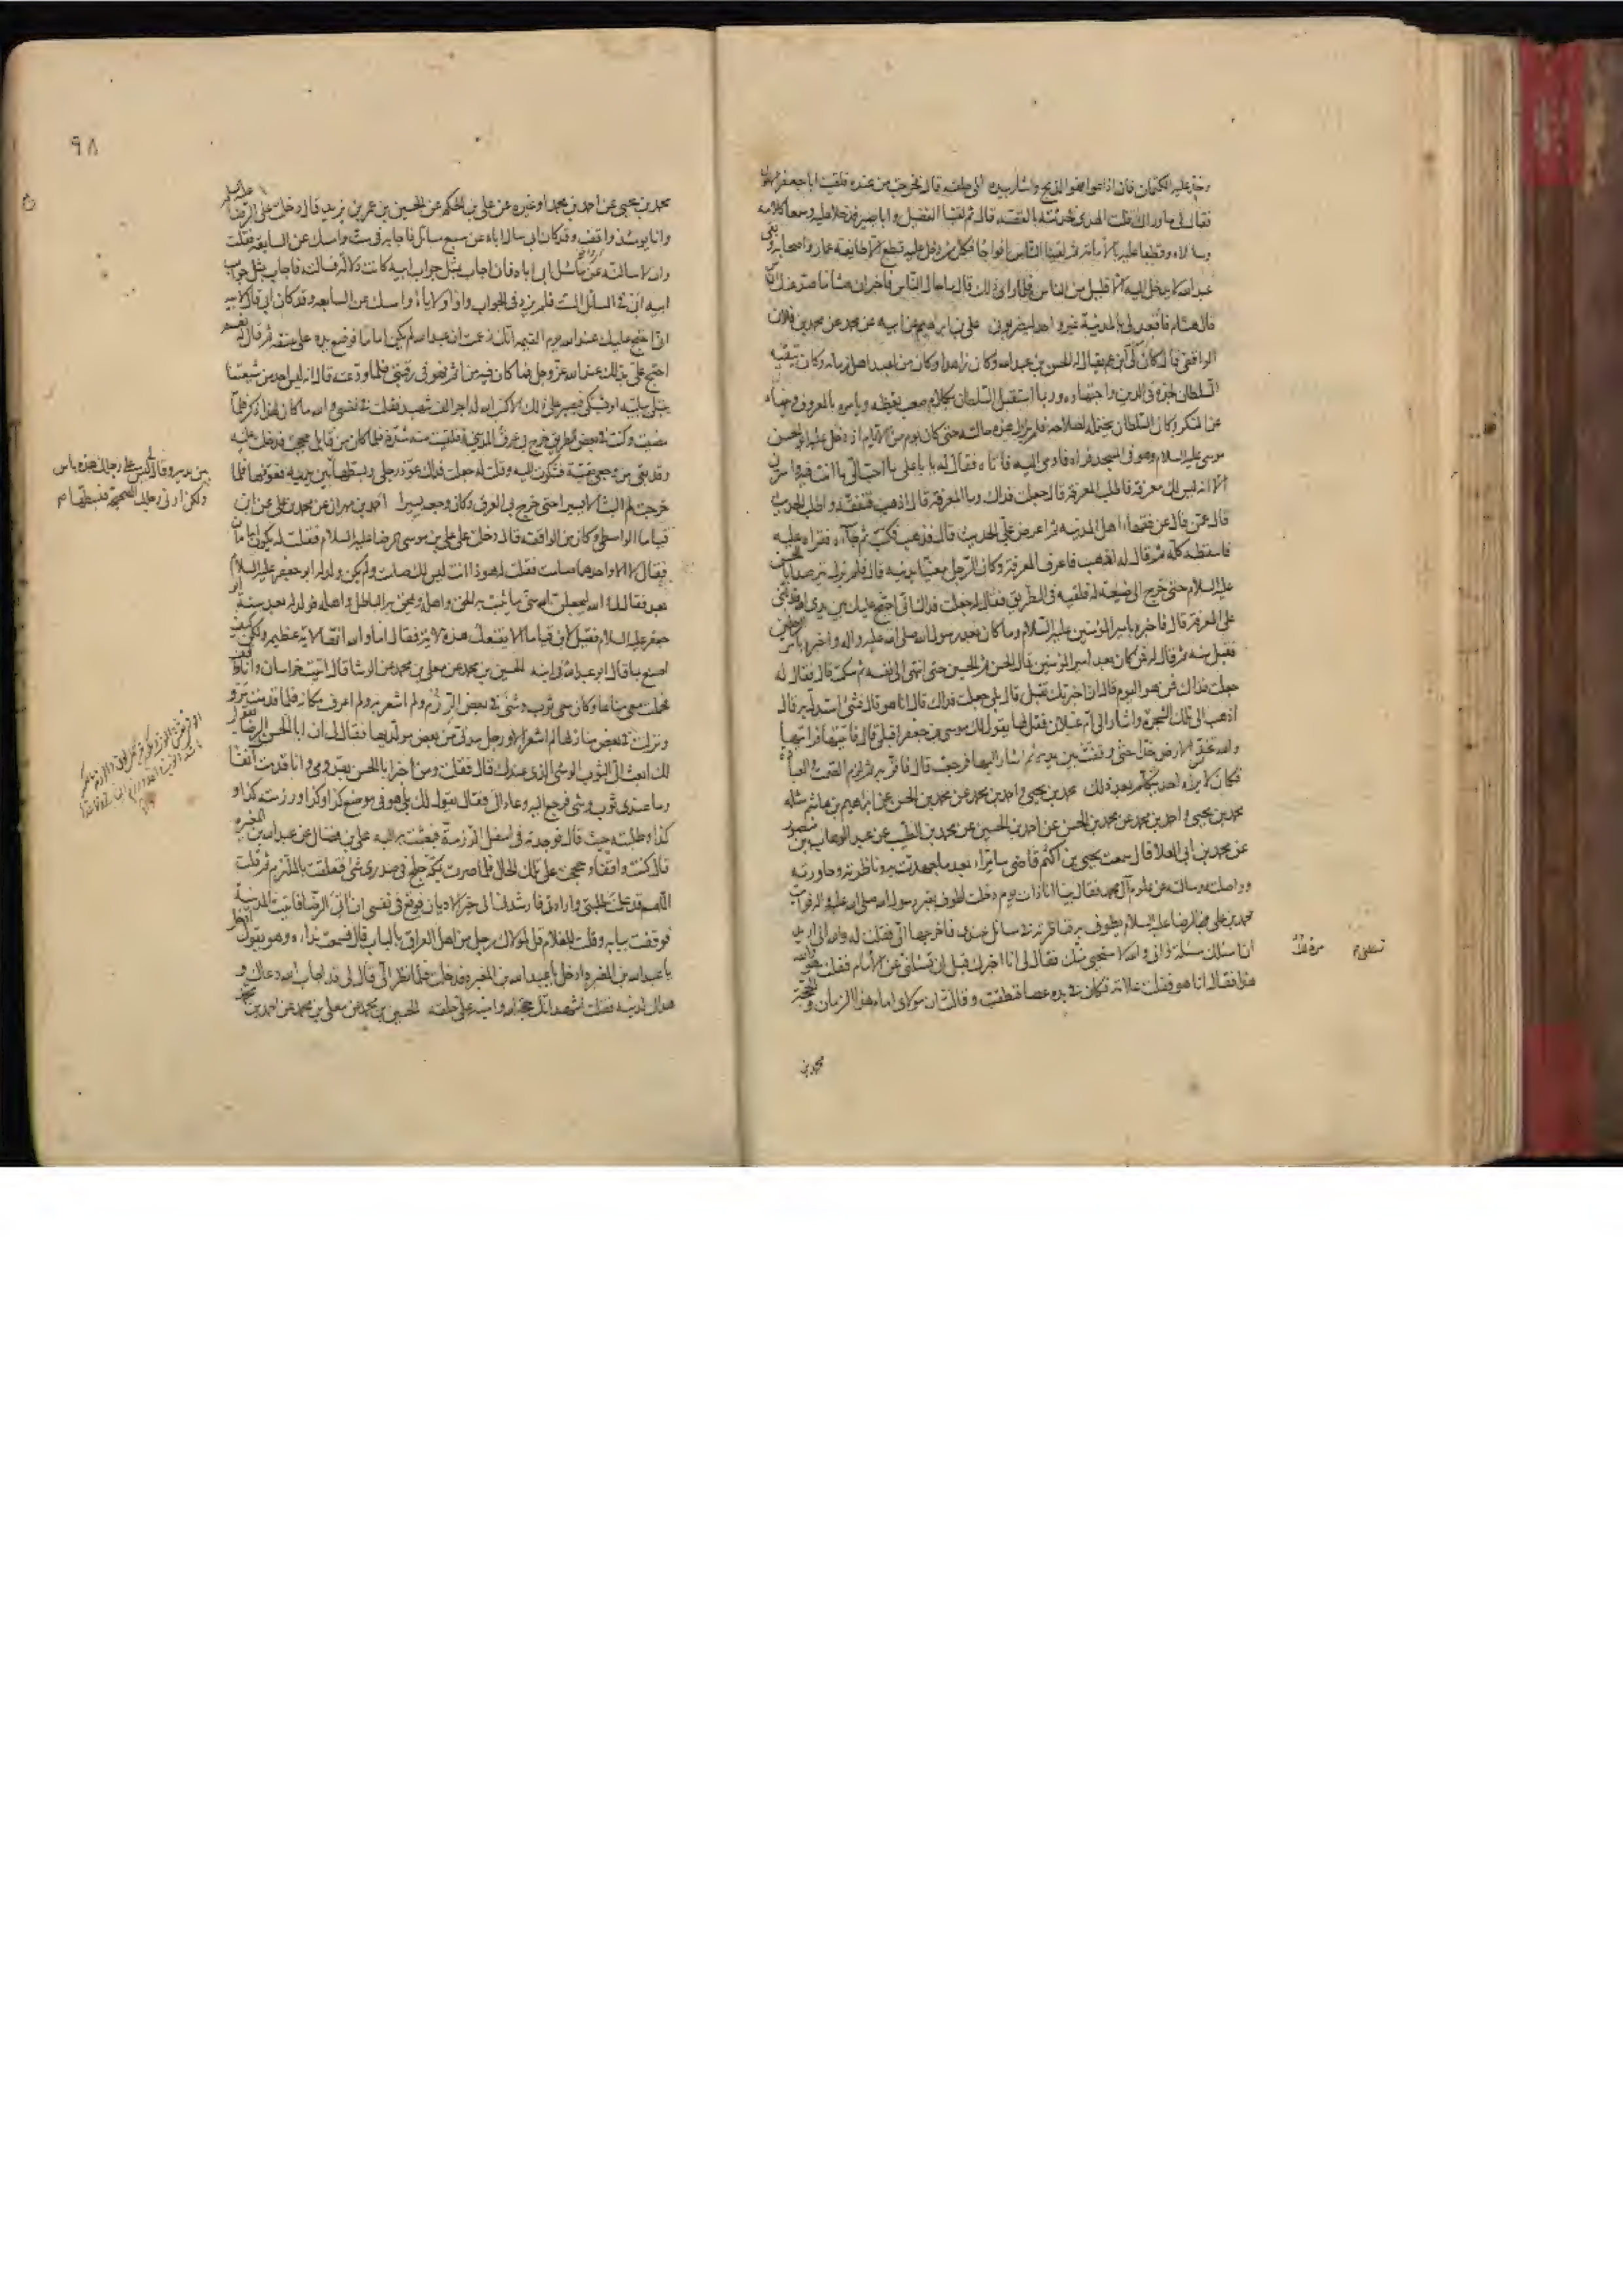 وخذ عليه الكتمان فان اذاعوا فهو الذبح واشار بيده الى حلقه قال فخرجت من عنده فلقيت ابا جعفر الاحول
فقال لى ما وراك قلت الهدى فحدثته بالقصه قال ثم لقينا الفضيل وابا بصير فدخلا عليه وسمعا كلامه
وساءلاه وقطعا عليه بالامامة ثم لقينا الناس افواجا فكل من دخل عليه قطع الا طائفة عمار واصحابه وبقى
عبد الله لا يدخل اليه الا قليل من الناس فلما راى ذلك قال ما حال الناس فاخبر ان هشاما صد عنك الناس
قال هشام فاقعد لى بالمدينة غير واحد ليضربونى على بن ابراهيم عن ابيه عن محمد عن محمد بن فلان
الواقفى قال كان لى ابن عم يقال له الحسن بن عبد الله وكان زاهدا وكان من اعبد اهل زمانه وكان يتقيه
السلطان لجده فى الدين واجتهاده وربما استقبل السلطان بكلام صعب يعظه ويامره بالمعروف وينهاه
عن المنكر وكان السلطان يحتمله لصلاحه فلم تزل هذه حالته حتى كان يوم من الايام اذ دخل عليه ابو الحسن
موسى عليه السلام وهو فى المسجد فراه فاومى اليه فاتاه فقال له يا با على ما احب الى ما انت فيه واسرنى
الا انه ليس لك معرفة فاطلب المعرفة قال جعلت فداك وما المعرفة قال اذهب فتفقه واطلب الحديث
قال عمن قال عن فقهاء اهل المدينه ثم اعرض على الحديث قال فذهب فكتب ثم جاءه فقراه عليه
فاسقطه كله ثم قال له اذهب فاعرف المعرفة وكان الرجل معنيا بدينه قال فلم يزل يترصد ابا الحسن
عليه السلام حتى خرج الى ضيعة له فلقيه فى الطريق فقال له جعلت فداك انى احتج عليك بين يدى الله فدلنى
على المعرفة قال فاخبره بامير المؤمنين عليه السلام وما كان بعد رسول الله صلى الله عليه واله واخبره بامر الرجلين
فقبل منه ثم قال له فمن كان بعد امير المؤمنين قال الحسن ثم الحسين حتى انتهى الى نفسه ثم سكت قال فقال له
جعلت فداك فمن هو اليوم قال ان اخبرتك تقبل قال بلى جعلت فداك قال انا هو قال فشئ استدل به قال
اذهب الى تلك الشجرة واشار الى ام غيلان فقل لها يقول لك موسى بن جعفر اقبلى قال فاتيتها فرايتها
والله تخد الارض خدا حتى وقفت بين يديه ثم اشار اليها فرجعت قال فاقر به ثم لزم الصمت والعبادة
فكان لا يراه احد يتكلم بعد ذلك محمد بن يحيى واحمد بن محمد عن محمد بن الحسن عن ابراهيم بن هاشم مثله
محمد بن يحيى واحمد بن محمد عن محمد بن الحسن عن احمد بن الحسين عن محمد بن الطيب عن عبد الوهاب بن منصور
عن محمد بن ابى العلا قال سمعت يحيى بن اكثم قاضى سامراء بعد ما جهدت به وناظرته وحاورته
وواصلته وسالته عن علوم آل محمد فقال بينا انا ذات يوم دخلت اطوف بقبر رسول الله صلى الله عليه واله فرايت
محمد بن على الرضا عليه السلام يطوف به فناظرته فى مسائل عندى فاخرجها الى فقلت له والله انى اريد
ان اسئلك مسئلة وانى والله لاستحيى من ذلك فقال لى انا اخبرك قبل ان تسئلنى تسئلنى عن الامام فقلت هو والله
هذا فقال انا هو فقلت علامة فكان فى يده عصا فنطقت وقالت ان مولاى امام هذا الزمان وهو الحجة
محمد بن
٩٨
محمد بن يحيى عن احمد بن محمد او غيره عن على بن الحكم عن الحسين بن عمر بن يزيد قال دخلت على الرضا عليه السلم
وانا يومئذ واقف وقد كان ابى سال اباه عن سبع مسائل فاجابه فى ست وامسك عن السابعة فقلت
والله لاسالنه عما سئل ابى اباه فان اجاب بمثل جواب ابيه كانت دلالة فسالته فاجاب بمثل جواب
ابيه ابى فى المسائل الست فلم يزد فى الجواب واوا ولا ياء وامسك عن السابعه وقد كان ابى قال لابيه
انى احتج عليك عند الله يوم القيمه انك زعمت ان عبد الله لم يكن اماما فوضع يده على عنقه ثم قال له نعم
احتج على بذلك عند الله عز وجل فما كان فيه من اثم فهو فى رقبتى فلما ودعته قال انه ليس احد من شيعتنا
يبتلى ببليه او يشتكى فيصبر على ذلك الا كتب الله له اجر الف شهيد فقلت فى نفسى والله ما كان لهذا ذكر فلما
مضيت وكنت فى بعض الطريق خرج بى عرق المدينى فلقيت منه شدة فلما كان من قابل حججت فدخلت عليه
وقد بقى من وجعى بقية فشكوت اليه وقلت له جعلت فداك عوذ رجلى وبسطتها بين يديه فعوذها فلما
خرجت لم البث الا يسيرا حتى خرج بى العرق وكان وجعه يسيرا احمد بن مهران عن محمد بن على عن ابن
قياما الواسطى وكان من الواقفه قال دخلت على على بن موسى الرضا عليه السلام فقلت له يكون امامان
فقال لا الا واحدهما صامت فقلت له هوذا انت ليس لك صامت ولم يكن ولد له ابو جعفر عليه السلام
بعد فقال لى والله ليجعلن الله منى ما يثبت به الحق واهله ويمحق به الباطل واهله فولد له بعد سنة ابو
جعفر عليه السلام فقيل لابن قياما الا يقنعك هذه الاية فقال اما والله انها لاية عظيمه ولكن كيف
اصنع بما قال ابو عبد الله فى ابنه الحسين بن محمد عن معلى بن محمد عن الوشا قال اتيت خراسان وانا واقف
فحملت معى متاعا وكان معى ثوب وشى فى بعض الرزم ولم اشعر به ولم اعرف مكانه فلما قدمت مرو
ونزلت فى بعض منازلها لم اشعر الا ورجل مدنى من بعض مولديها فقال لى ان ابا الحسن الرضا يقول
لك ابعث الى الثوب الوشى الذى عندك قال فقلت ومن اخبر ابا الحسن بقدومى وانا قدمت آنفا
وما عندى ثوب وشى فرجع اليه وعاد الى فقال يقول لك بلى هو فى موضع كذا وكذا ورزمته كذا و
كذا فطلبته حيث قال فوجدته فى اسفل الرزمة فبعثت به اليه على بن فضال عن عبد الله بن المغيره
قال كنت واقفا وحججت على تلك الحال فلما صرت بمكة خلج فى صدرى شئ فتعلقت بالملتزم ثم قلت
اللهم قد علمت طلبتى وارادتى فارشدنى الى خير الاديان فوقع فى نفسى ان اتى الرضا فاتيت المدينة
فوقفت ببابه وقلت للغلام قل لمولاك رجل من اهل العراق بالباب قال فسمعت نداءه وهو يقول ادخل
يا عبد الله بن المغيره ادخل يا عبد الله بن المغيره فدخلت فلما نظر الى قال لى قد اجاب الله دعاك و
هداك لدينه فقلت اشهد انك حجة الله وامينه على خلقه الحسين بن محمد عن معلى بن محمد عن احمد بن محمد